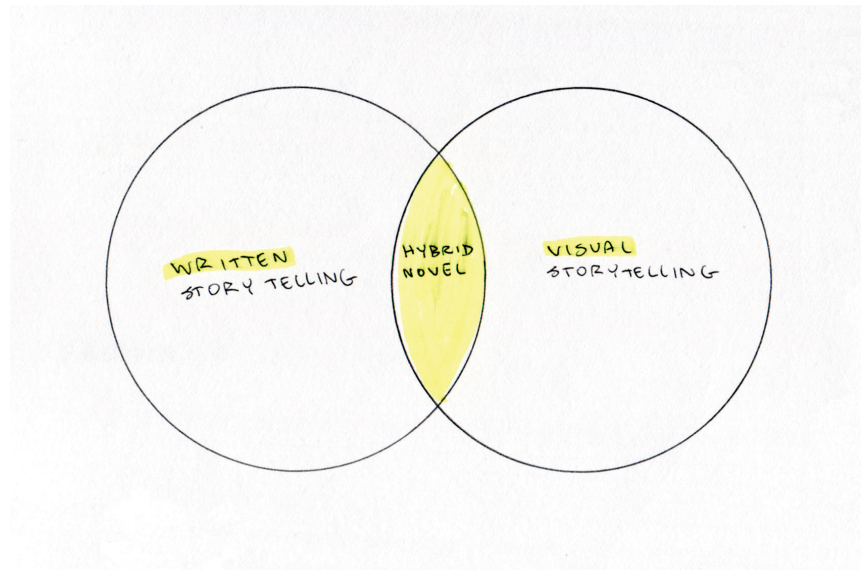 WRITTEN
STORY TELLING
HYBRID
NOVEL
VISUAL
STORYTELLING